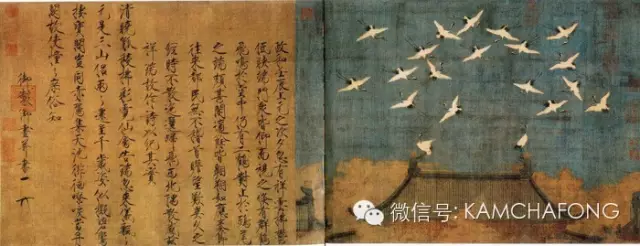 政和壬辰上元之次夕忽有祥雲拂鬱
低映端門眾皆仰而視之倏有群鶴
飛鳴於空中仍有二鶴對止於鴟尾
之端頗甚閒適餘皆翱翔如應奏節
往來都民無不稽首瞻望歎異久之
經時不散迤邐歸飛西北隅散感茲
祥瑞故作詩以紀其實
清曉觚稜拂彩霓仙禽告瑞忽來儀飄飄
元是三山侶兩兩還呈千歲姿似擬碧鸞
棲寶閣豈同赤雁集天池徘徊嘹唳當丹
闕故使憧憧庶俗知
御製御畫并書
微信号: KAMCHAFONG